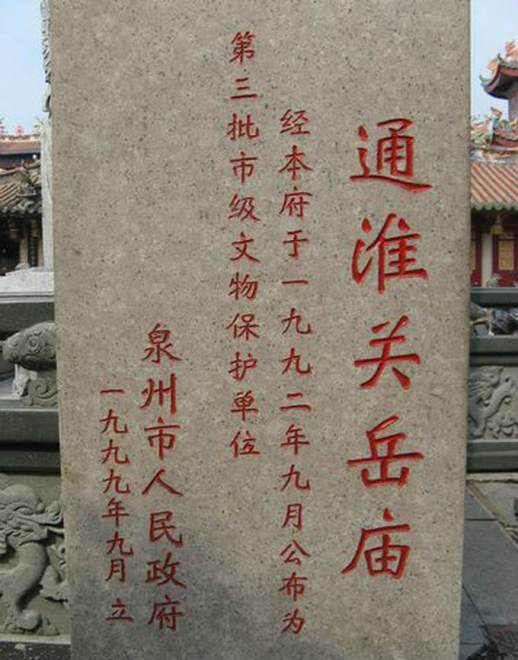 通淮关岳庙
经本府于一九九二年九月公布为
第三批市级文物保护单位
泉州市人民政府
一九九九年九月 立